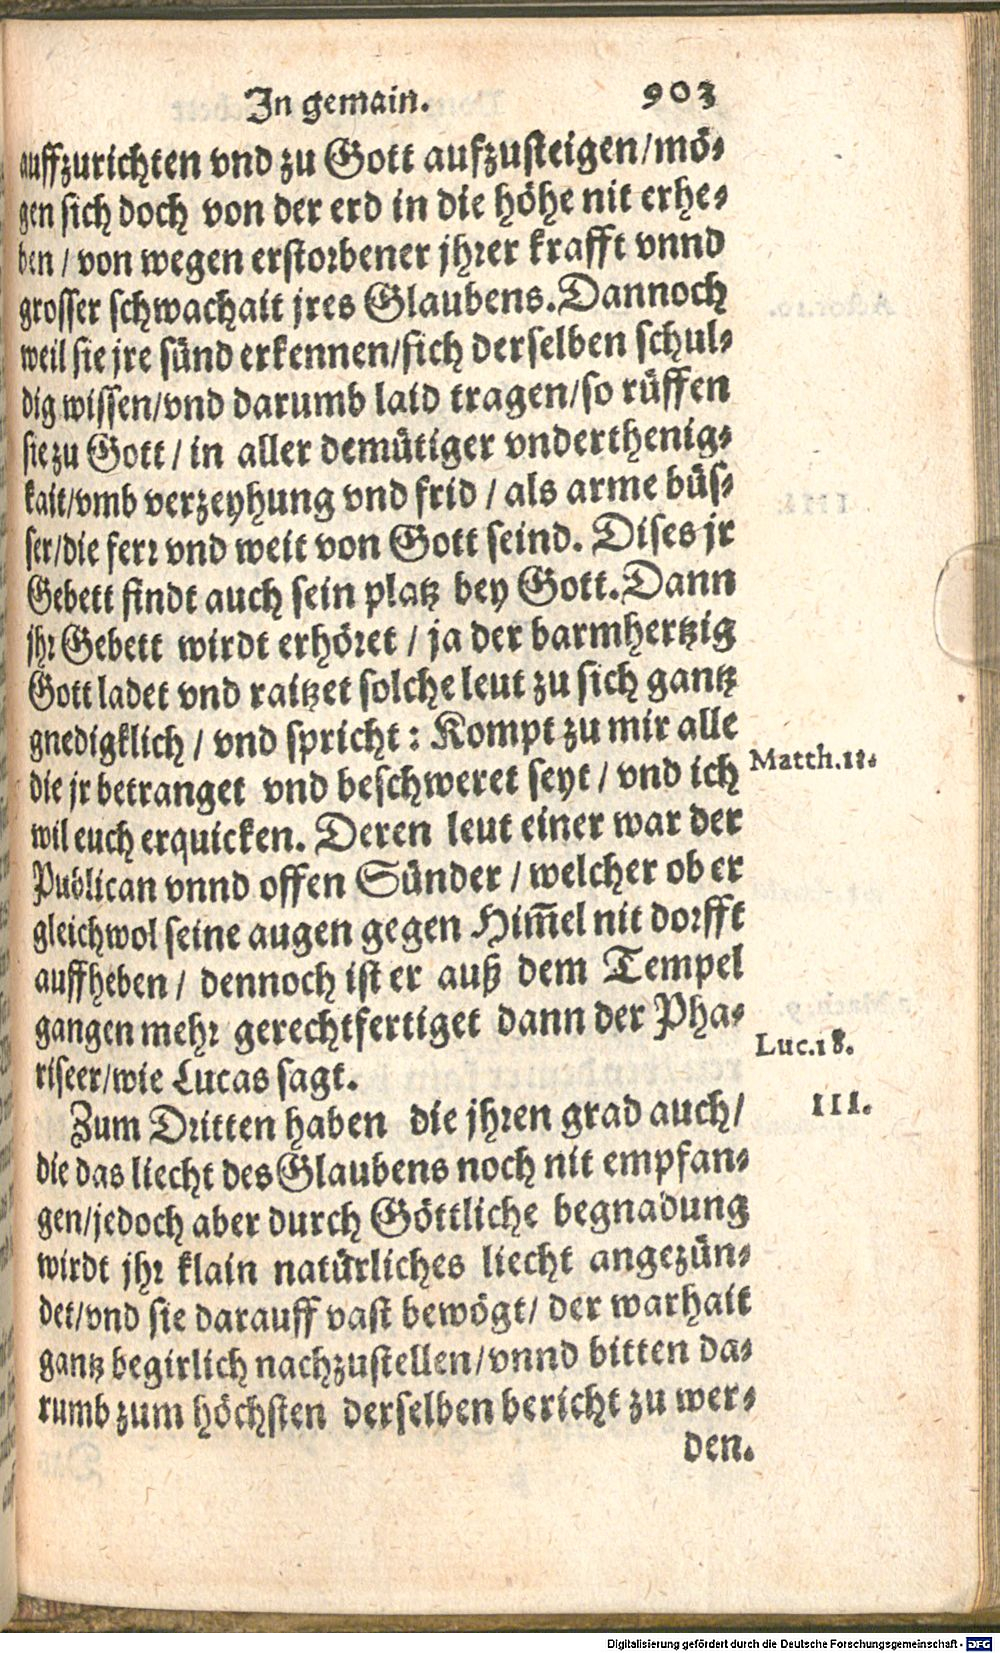 In gemain. 903
auffzurichten vnd zu Gott aufzusteigen/mö-
gen sich doch von der erd in die höhe nit erhe-
ben / von wegen erstorbener jhrer krafft vnnd
grosser schwachait jres Glaubens. Dannoch
weil sie jre sünd erkennen/sich derselben schul-
dig wissen/vnd darumb laid tragen/so rüffen
sie zu Gott / in aller demütiger vnderthenig-
kait/vmb verzeyhung vnd frid / als arme büs-
ser/die ferr vnd weit von Gott seind. Dises jr
Gebett findt auch sein platz bey Gott. Dann
jhr Gebett wirdt erhöret / ja der barmhertzig
Gott ladet vnd raitzet solche leut zu sich gantz
gnedigklich / vnd spricht: Kompt zu mir alle
die jr betranget vnd beschweret seyt / vnd ich
Matth.11.
wil euch erquicken. Deren leut einer war der
Publican vnnd offen Sünder / welcher ob er
gleichwol seine augen gegen Him̃el nit dorfft
auffheben / dennoch ist er auß dem Tempel
gangen mehr gerechtfertiget dann der Pha-
Luc.18.
riseer/wie Lucas sagt.
Zum Dritten haben die jhren grad auch/
III.
die das liecht des Glaubens noch nit empfan-
gen/jedoch aber durch Göttliche begnadung
wirdt jhr klain natürliches liecht angezün-
det/vnd sie darauff vast bewögt/ der warhait
gantz begirlich nachzustellen/vnnd bitten da-
rumb zum höchsten derselben bericht zu wer-
den.
Digitalisierung gefördert durch die Deutsche Forschungsgemeinschaft - DFG